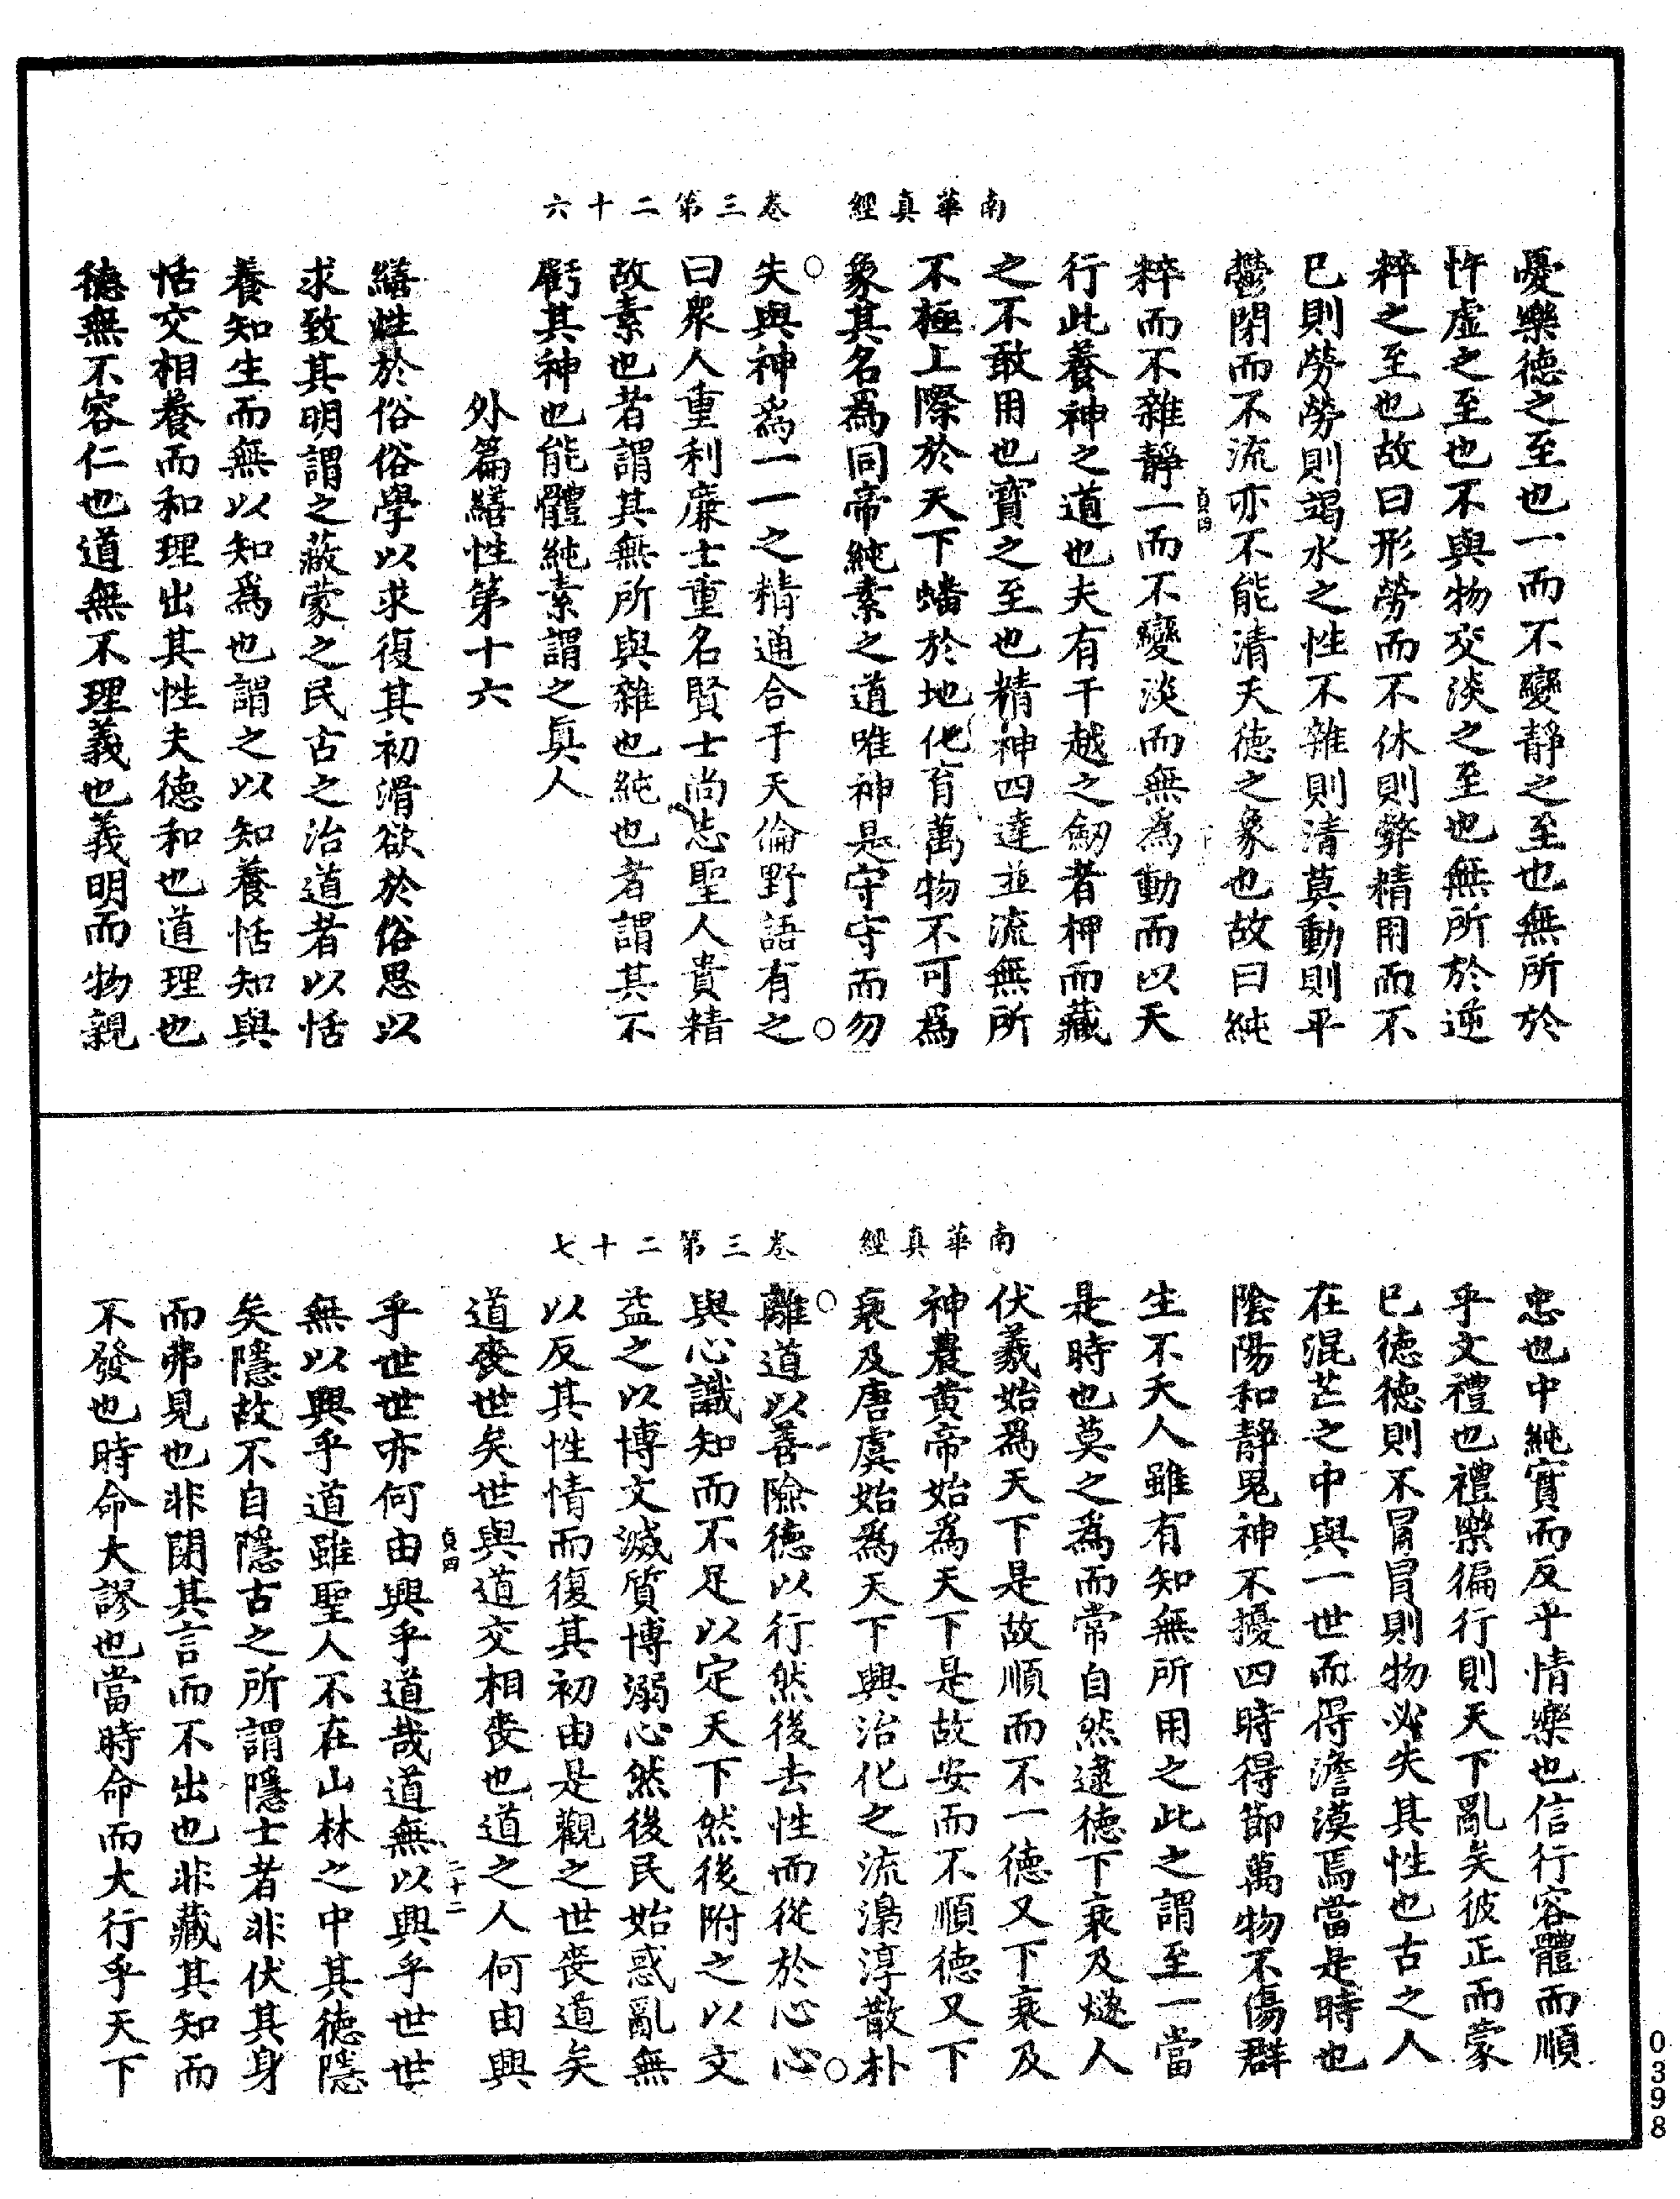 南華真經　卷三第二十六
憂樂德之至也一而不變靜之至也無所於
忤虛之至也不與物交淡之至也無所於逆
粹之至也故曰形勞而不休則弊精用而不
已則勞勞則竭水之性不雜則清莫動則平
鬱閉而不流亦不能清天德之象也故曰純
貞四
粹而不雜靜一而不變淡而無為動而以天
行此養神之道也夫有干越之劒者柙而藏
之不敢用也寶之至也精神四達並流無所
不極上際於天下蟠於地化育萬物不可為
象其名為同帝純素之道唯神是守守而勿
失與神為一一之精通合于天倫野語有之
曰衆人重利廉士重名賢士尚志聖人貴精
故素也者謂其無所與雜也純也者謂其不
虧其神也能體純素謂之真人
外篇繕性第十六
繕性於俗俗學以求復其初滑欲於俗思以
求致其明謂之蔽蒙之民古之治道者以恬
養知知生而無以知為也謂之以知養恬知與
恬交相養而和理出其性夫德和也道理也
德無不容仁也道無不理義也義明而物親
南華真經　卷三第二十七
忠也中純實而反乎情樂也信行容體而順
乎文禮也禮樂徧行則天下亂矣彼正而蒙
已德德則不冒冒則物必失其性也古之人
在混芒之中與一世而得澹漠焉當是時也
陰陽和靜鬼神不擾四時得節萬物不傷群
生不夭人雖有知無所用之此之謂至一當
是時也莫之為而常自然逮德下衰及燧人
伏羲始為天下是故順而不一德又下衰及
神農黃帝始為天下是故安而不順德又下
衰及唐虞始為天下興治化之流澆淳散朴
離道以善險德以行然後去性而從於心心
與心識知而不足以定天下然後附之以文
益之以博文滅質博溺心然後民始惑亂無
以反其性情而復其初由是觀之世喪道矣
道喪世矣世與道交相喪也道之人何由興
貞四　二十二
乎世世亦何由興乎道哉道無以興乎世世
無以興乎道雖聖人不在山林之中其德隱
矣隱故不自隱古之所謂隱士者非伏其身
而弗見也非閉其言而不出也非藏其知而
不發也時命大謬也當時命而大行乎天下
0398